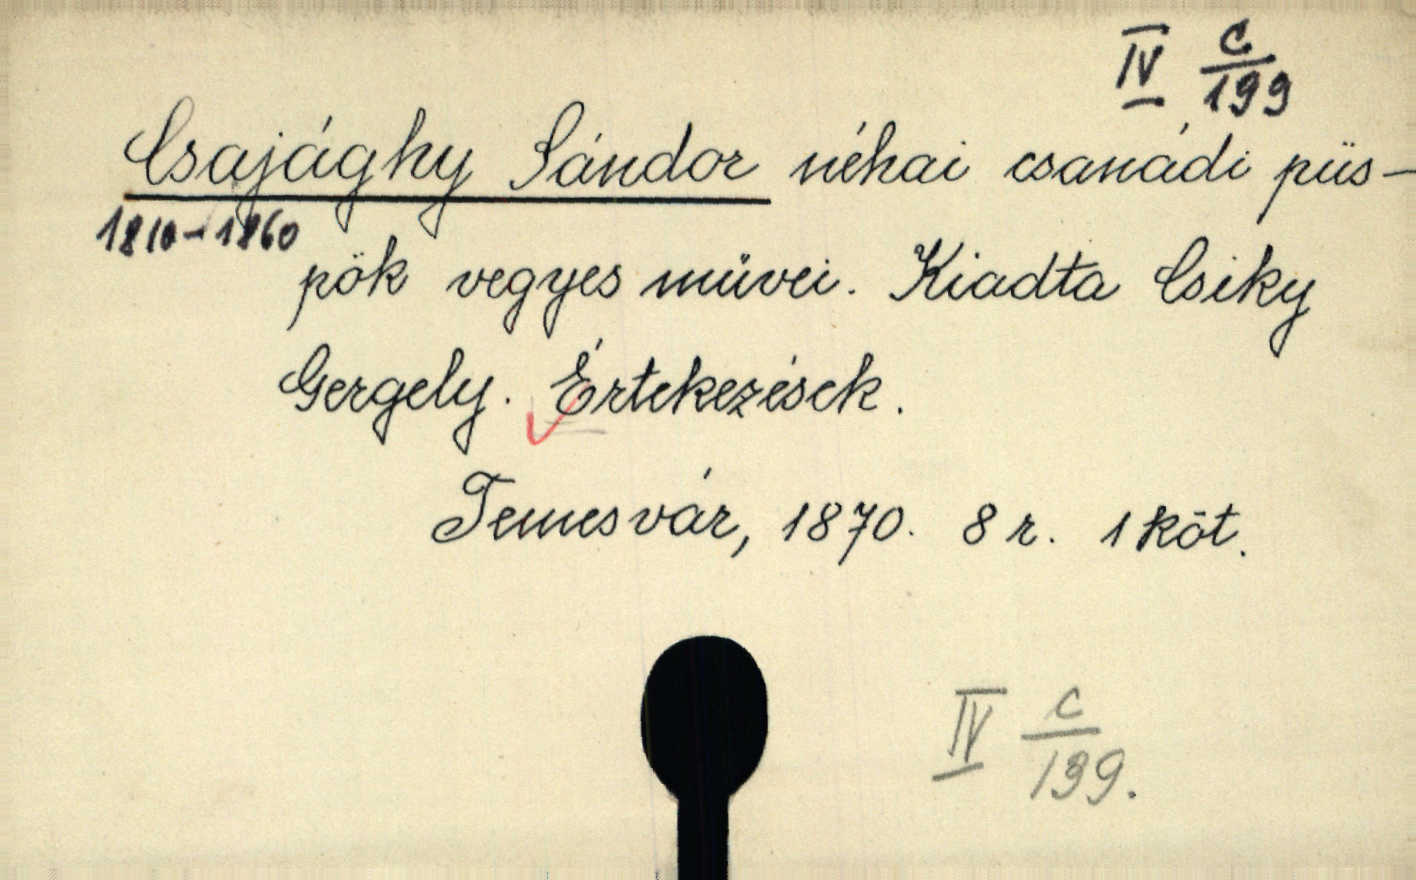 IV C/199
Csajághy Sándor néhai csanádi püs-
1810-1860
pök vegyes müvei. Kiadta Csiky
Gergely. Értekezések.
Temesvár, 1870. 8 r. 1 köt.
IV C/199.